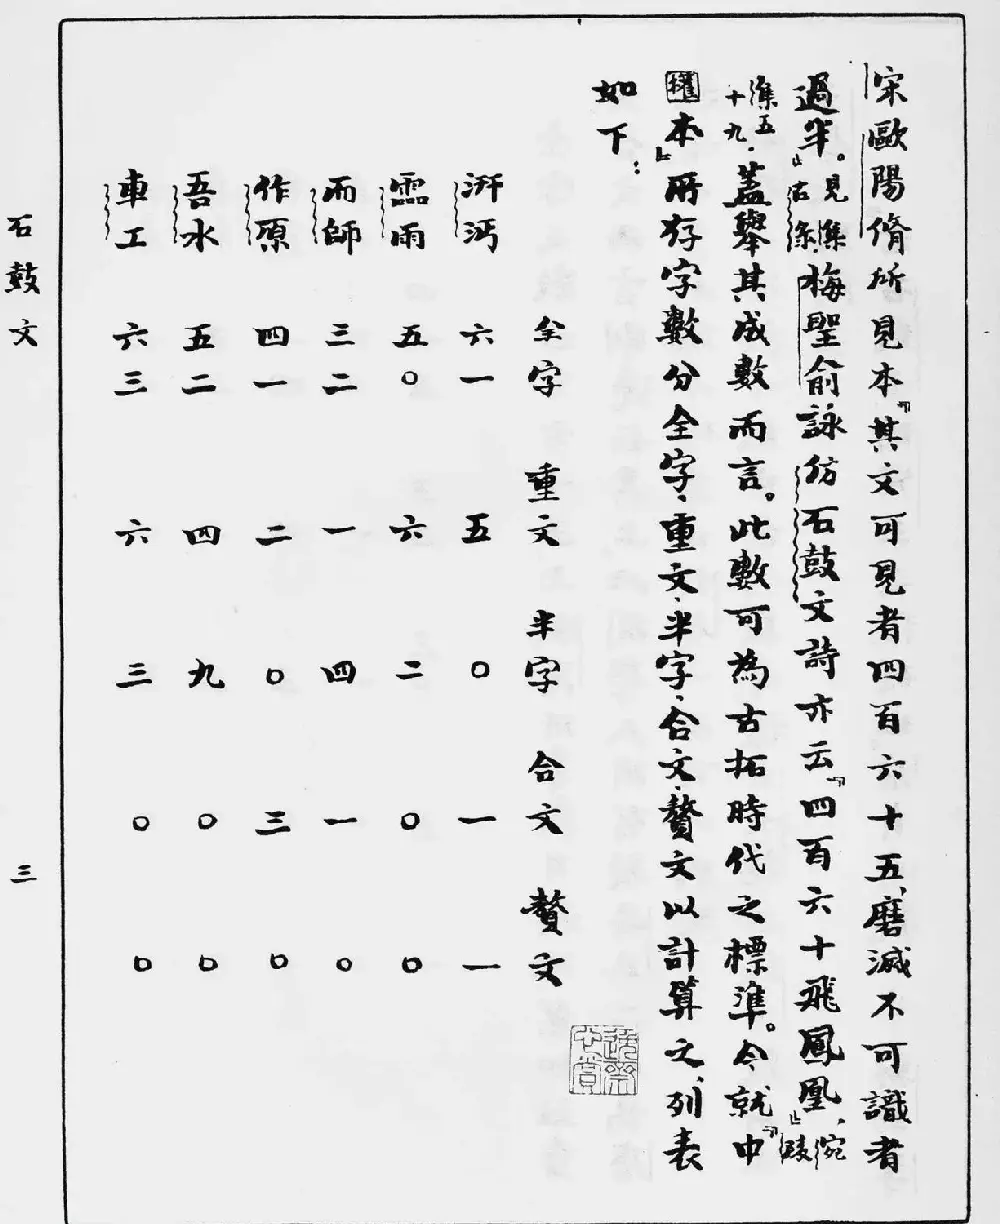 宋歐陽脩所見本「其文可見者四百六十五，磨滅不可識者
過半。」見集古錄 梅聖俞詠仿石鼓文詩亦云「四百六十飛鳳凰，」宛陵
集五十九．蓋舉其成數而言。此數可為古拓時代之標準。今就「中
權本」所存字數分全字、重文、半字、合文、贅文以計算之，列表
如下：
全字 重文 半字 合文 贅文
汧沔 六一 五 〇 一 一
霝雨 五〇 六 二 〇 〇
而師 三二 一 四 一 〇
作原 四一 二 〇 三 〇
吾水 五二 四 九 〇 〇
車工 六三 六 三 〇 〇
石鼓文
三